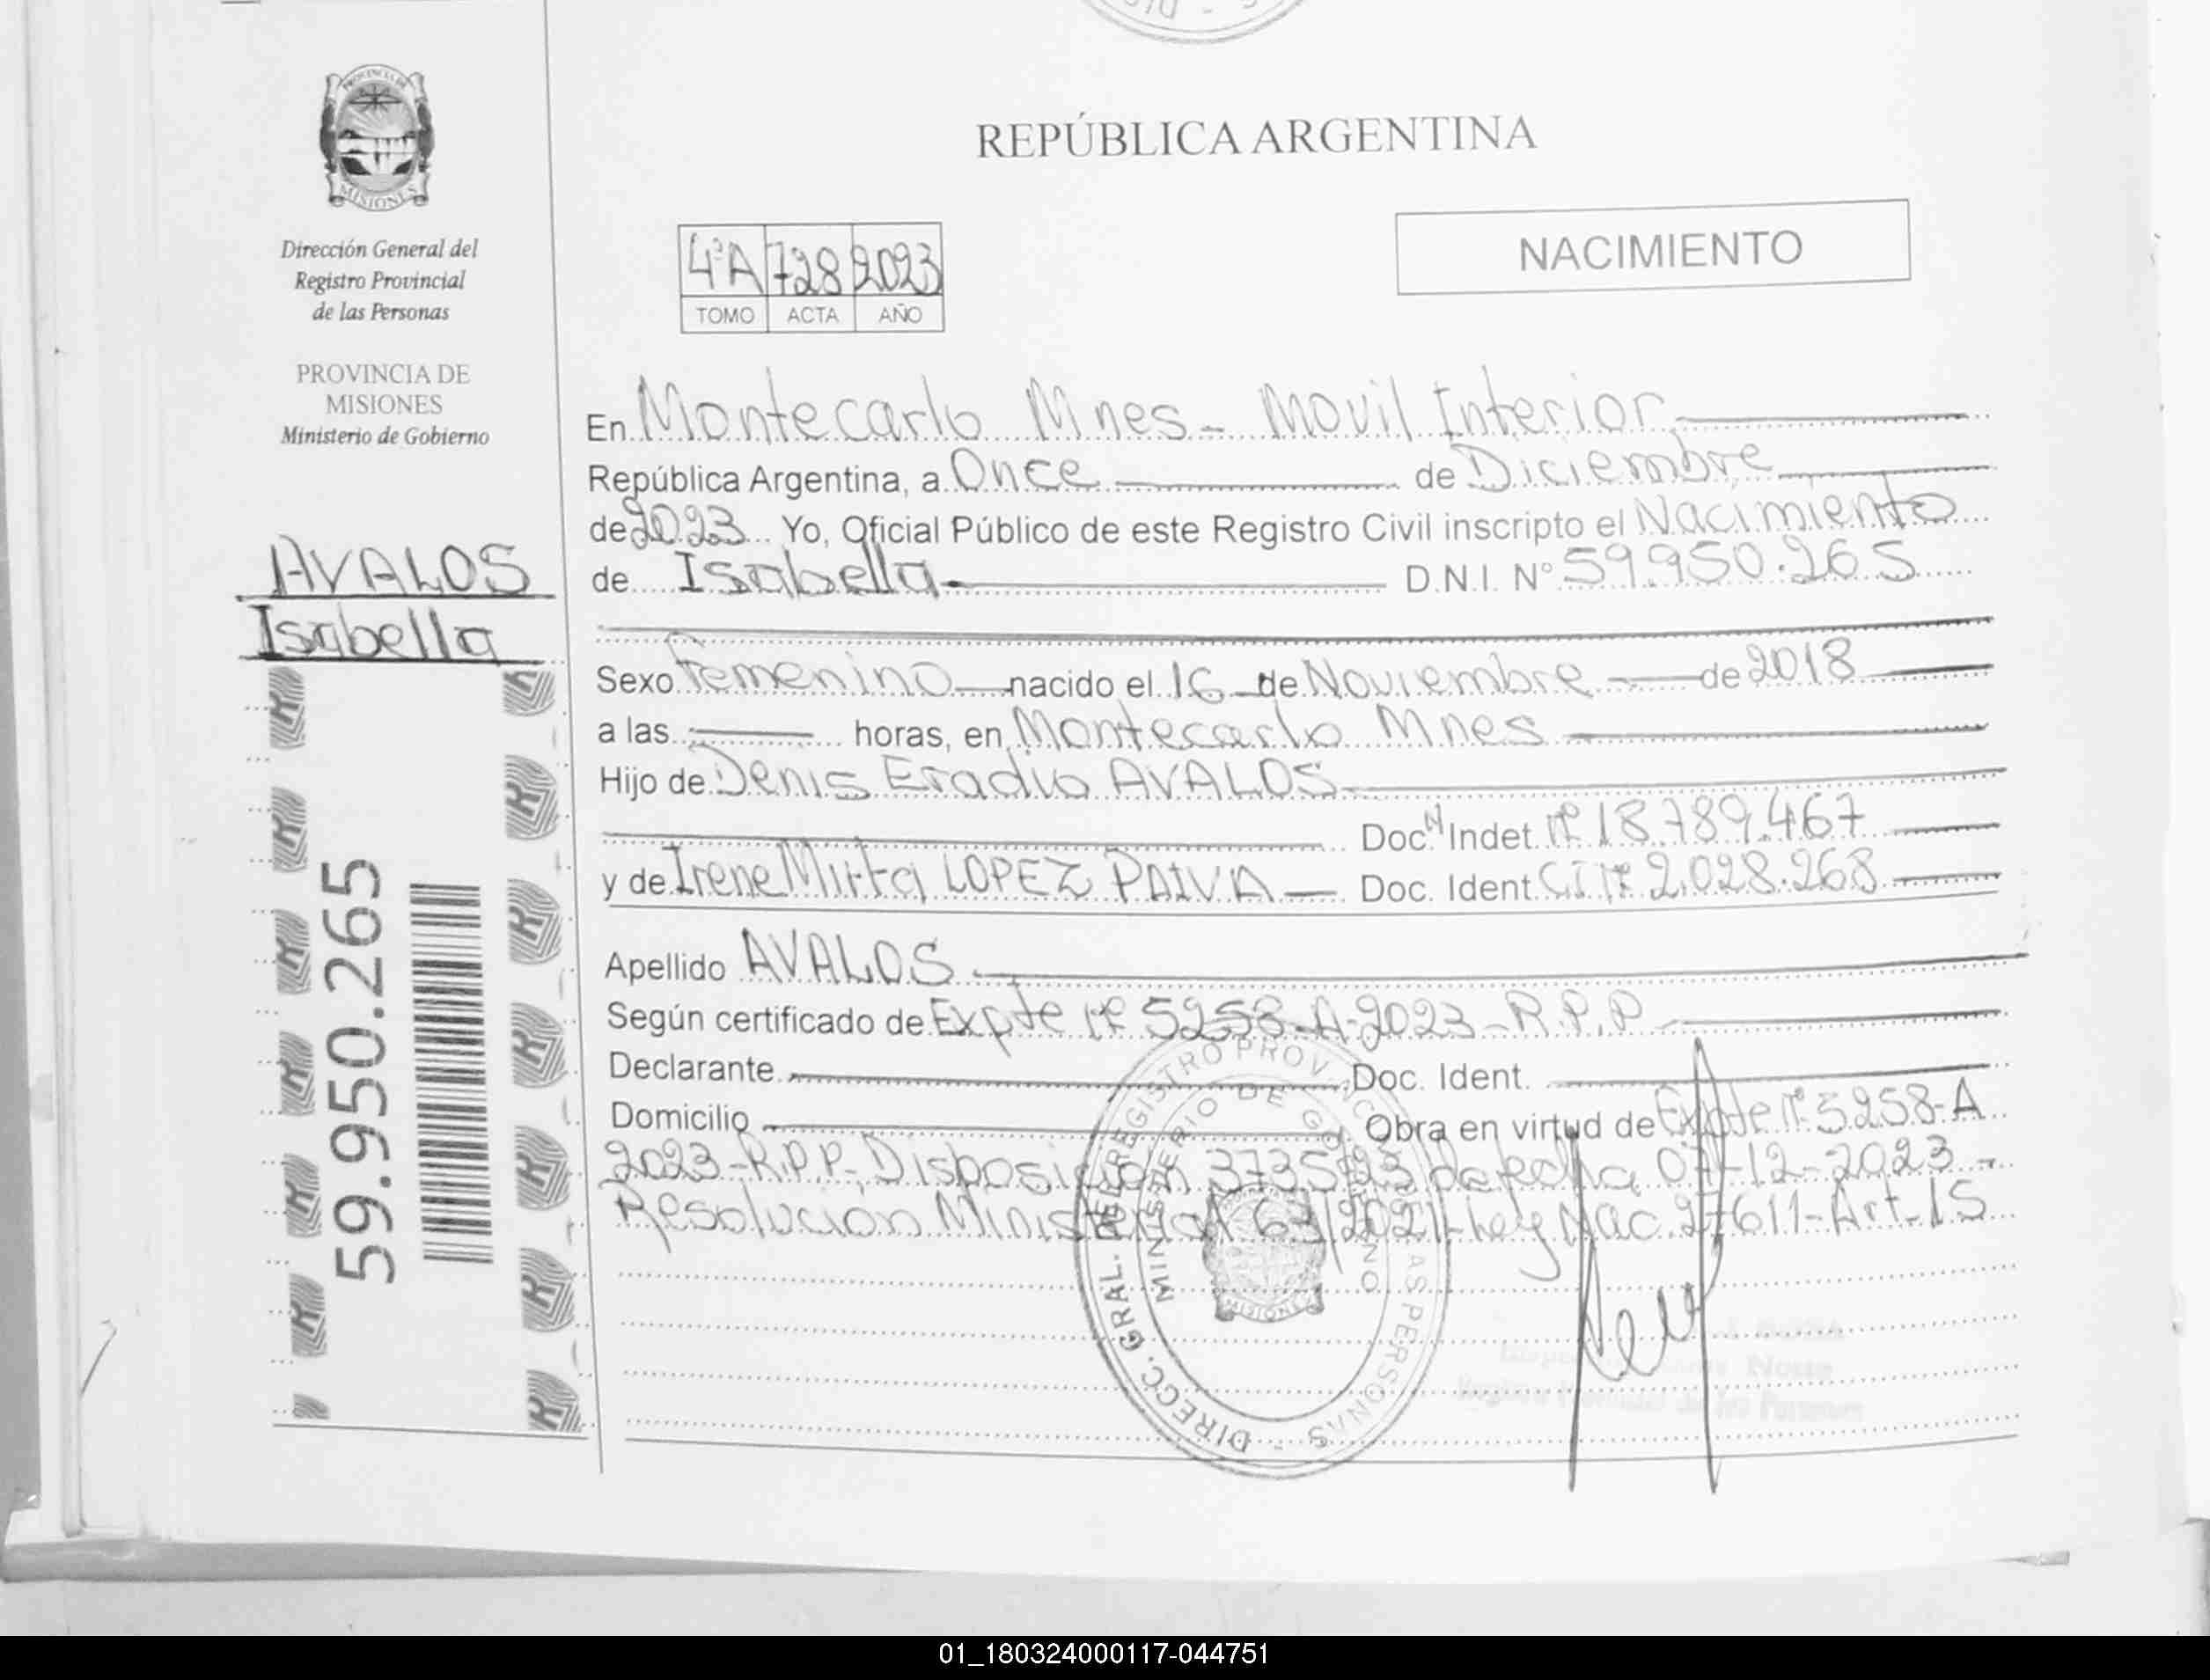 REPÚBLICA ARGENTINA
PROVINCIA DE
MISIONES
Dirección General del
Registro Provincial
de las Personas
PROVINCIA DE
MISIONES
Ministerio de Gobierno
AVALOS
Isabella
59.950.265
NACIMIENTO
4ºA 728 2023
TOMO ACTA AÑO
En Montecarlo Mnes - Movil Interior
República Argentina, a Once de Diciembre
de 2023 Yo, Oficial Público de este Registro Civil inscripto el Nacimiento
de Isabella D.N.I. Nº 59.950.265
Sexo Femenino nacido el 16 de Noviembre de 2018
a las horas, en Montecarlo Mnes
Hijo de Denis Eradio AVALOS
Doc. Indet. Nº 18.789.467
y de Irene Mirta LOPEZ PAIVA Doc. Ident. CI Nº 2.028.268
Apellido AVALOS
Según certificado de Expte Nº 5258-A-2023-R.P.P
Declarante Doc. Ident.
Domicilio Obra en virtud de Expte Nº 5258-A
2023-R.P.P- Disposición 3735/23 de fecha 07-12-2023-
Resolución Ministerial 63/2021-Ley Nac. 27611-Art-15
DIRECC. GRAL. DEL REGISTRO PROVINCIAL DE LAS PERSONAS
MINISTERIO DE GOBIERNO
MISIONES
Norte
01_180324000117-044751